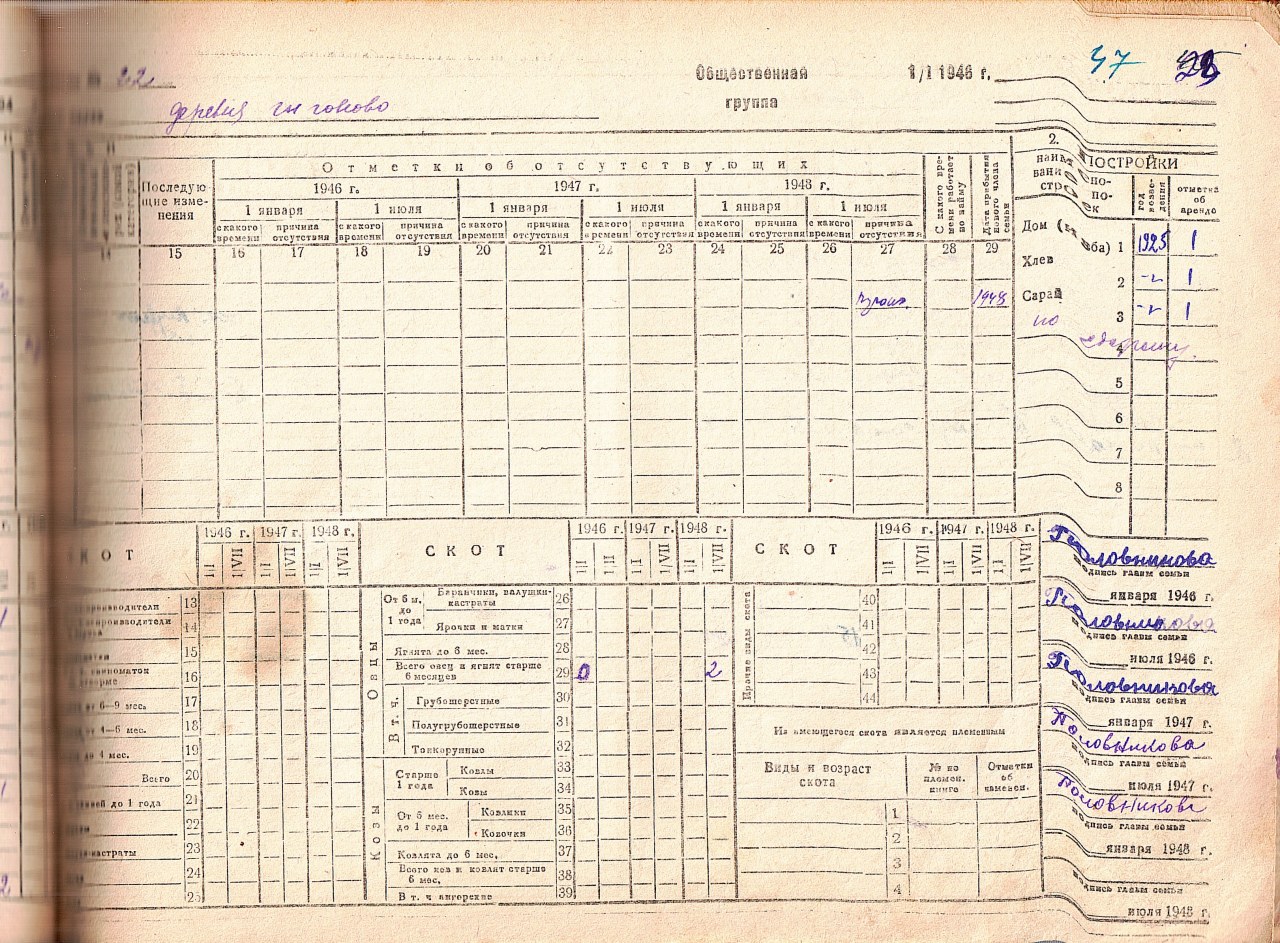 22
Общественная 1/I 1946 г. 47
группа
деревня
2.
Отметки об отсутствующих
ПОСТРОЙКИ
Последую-
щие изме-
нения
1946 г. 1947 г. 1948 г.
С какого вре-
мени работает
по найму
Дата прибытия
нового члена
семьи
год
возве-
дения
отметка
об
аренде
1 января 1 июля 1 января 1 июля 1 января 1 июля
с какого времени причина отсутствия с какого времени причина отсутствия с какого времени причина отсутствия с какого времени причина отсутствия с какого времени причина отсутствия с какого времени причина отсутствия
15 16 17 18 19 20 21 22 23 24 25 26 27 28 29
Дом (изба) 1 1925 1
Хлев 2 1
Сарай 3 1
1948
по
4
5
6
7
8
СКОТ 1946 г. 1947 г. 1948 г. СКОТ 1946 г. 1947 г. 1948 г. СКОТ 1946 г. 1947 г. 1948 г.
1/I 1/VII 1/I 1/VII 1/I 1/VII 1/I 1/VII 1/I 1/VII 1/I 1/VII 1/I 1/VII 1/I 1/VII 1/I 1/VII
производители 13
14
15
16
от 6—9 мес. 17
4—6 мес. 18
до 4 мес. 19
Всего 20
до 1 года 21
22
кастраты 23
24
25
Овцы
От 6 м. до 1 года
Баранчики, валушки-кастраты 26
Ярочки и матки 27
Ягнята до 6 мес. 28
Всего овец и ягнят старше 6 месяцев 29 0 2
В т. ч.
Грубошерстные 30
Полугрубошерстные 31
Тонкорунные 32
Козы
Старше 1 года
Козлы 33
Козы 34
От 6 мес. до 1 года
Козлики 35
Козочки 36
Козлята до 6 мес. 37
Всего коз и козлят старше 6 мес. 38
В т. ч. ангорские 39
Прочие виды скота
40
41
42
43
44
Из имеющегося скота является племенным
Виды и возраст скота № по племен. книге Отметки об изменен.
1
2
3
4
Половникова
подпись главы семьи
января 1946 г.
Половникова
подпись главы семьи
июля 1946 г.
Половникова
подпись главы семьи
января 1947 г.
Половникова
подпись главы семьи
июля 1947 г.
Половникова
подпись главы семьи
января 1948 г.
подпись главы семьи
июля 1948 г.